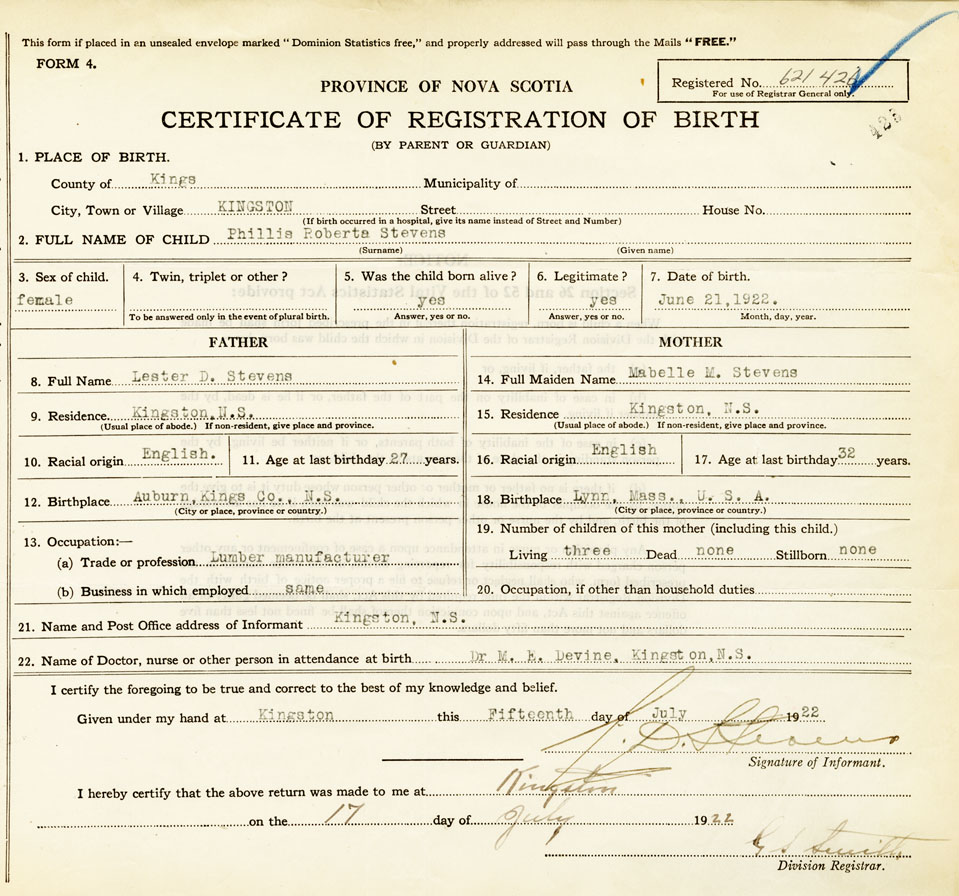 This form if placed in an unsealed envelope marked "Dominion Statistics free," and properly addressed will pass through the Mails "FREE."
FORM 4.
PROVINCE OF NOVA SCOTIA
Registered No. 621 426
For use of Registrar General only.
CERTIFICATE OF REGISTRATION OF BIRTH
423
(BY PARENT OR GUARDIAN)
1. PLACE OF BIRTH.
County of Kings Municipality of
City, Town or Village KINGSTON Street House No.
(If birth occurred in a hospital, give its name instead of Street and Number)
2. FULL NAME OF CHILD Phillis Roberta Stevens
(Surname) (Given name)
3. Sex of child. 4. Twin, triplet or other? 5. Was the child born alive? 6. Legitimate? 7. Date of birth.
female yes yes June 21,1922.
To be answered only in the event of plural birth. Answer, yes or no. Answer, yes or no. Month, day, year.
FATHER MOTHER
8. Full Name Lester D. Stevens 14. Full Maiden Name Mabelle M. Stevens
9. Residence. Kingston,N.S. 15. Residence Kingston, N.S.
(Usual place of abode.) If non-resident, give place and province. (Usual place of abode.) If non-resident, give place and province.
10. Racial origin English. 11. Age at last birthday 27 years. 16. Racial origin English 17. Age at last birthday 32 years.
12. Birthplace Auburn,Kings Co., N.S. 18. Birthplace Lynn, Mass., U. S. A.
(City or place, province or country.) (City or place, province or country.)
13. Occupation:— 19. Number of children of this mother (including this child.)
(a) Trade or profession Lumber manufacturer Living three Dead none Stillborn none
(b) Business in which employed same 20. Occupation, if other than household duties
21. Name and Post Office address of Informant Kingston, N.S.
22. Name of Doctor, nurse or other person in attendance at birth Dr M. E. Devine, Kingston,N.S.
I certify the foregoing to be true and correct to the best of my knowledge and belief.
Given under my hand at Kingston this Fifteenth day of July 1922
L. D. Stevens
Signature of Informant.
I hereby certify that the above return was made to me at Kingston
on the 17 day of July 1922
G S Smith
Division Registrar.